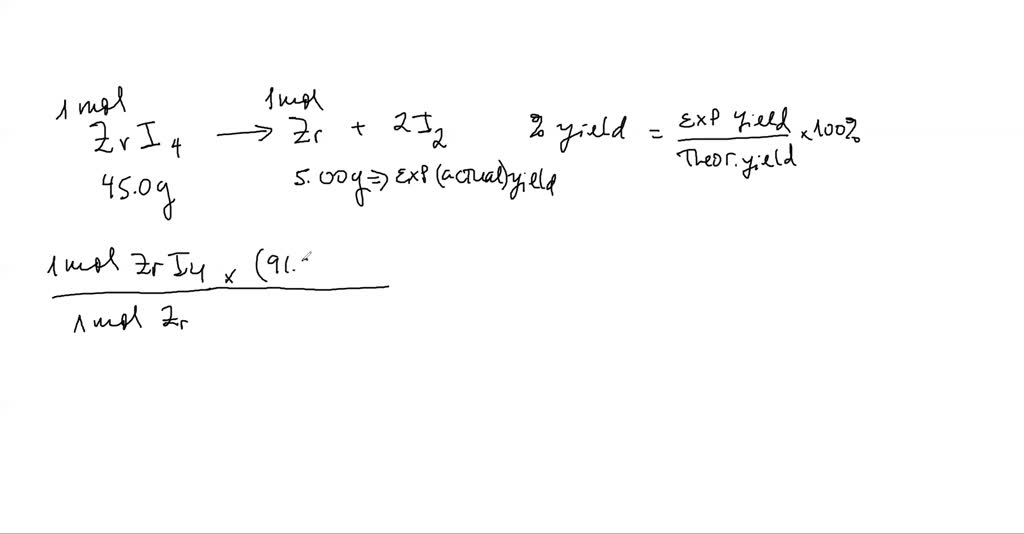 1 mol 1 mol
ZrI4 → Zr + 2I2 % yield = Exp yield / Theor. yield × 100%
45.0g 5.00g ⇒ Exp (actual) yield
1 mol ZrI4 × (91.
1 mol Zr